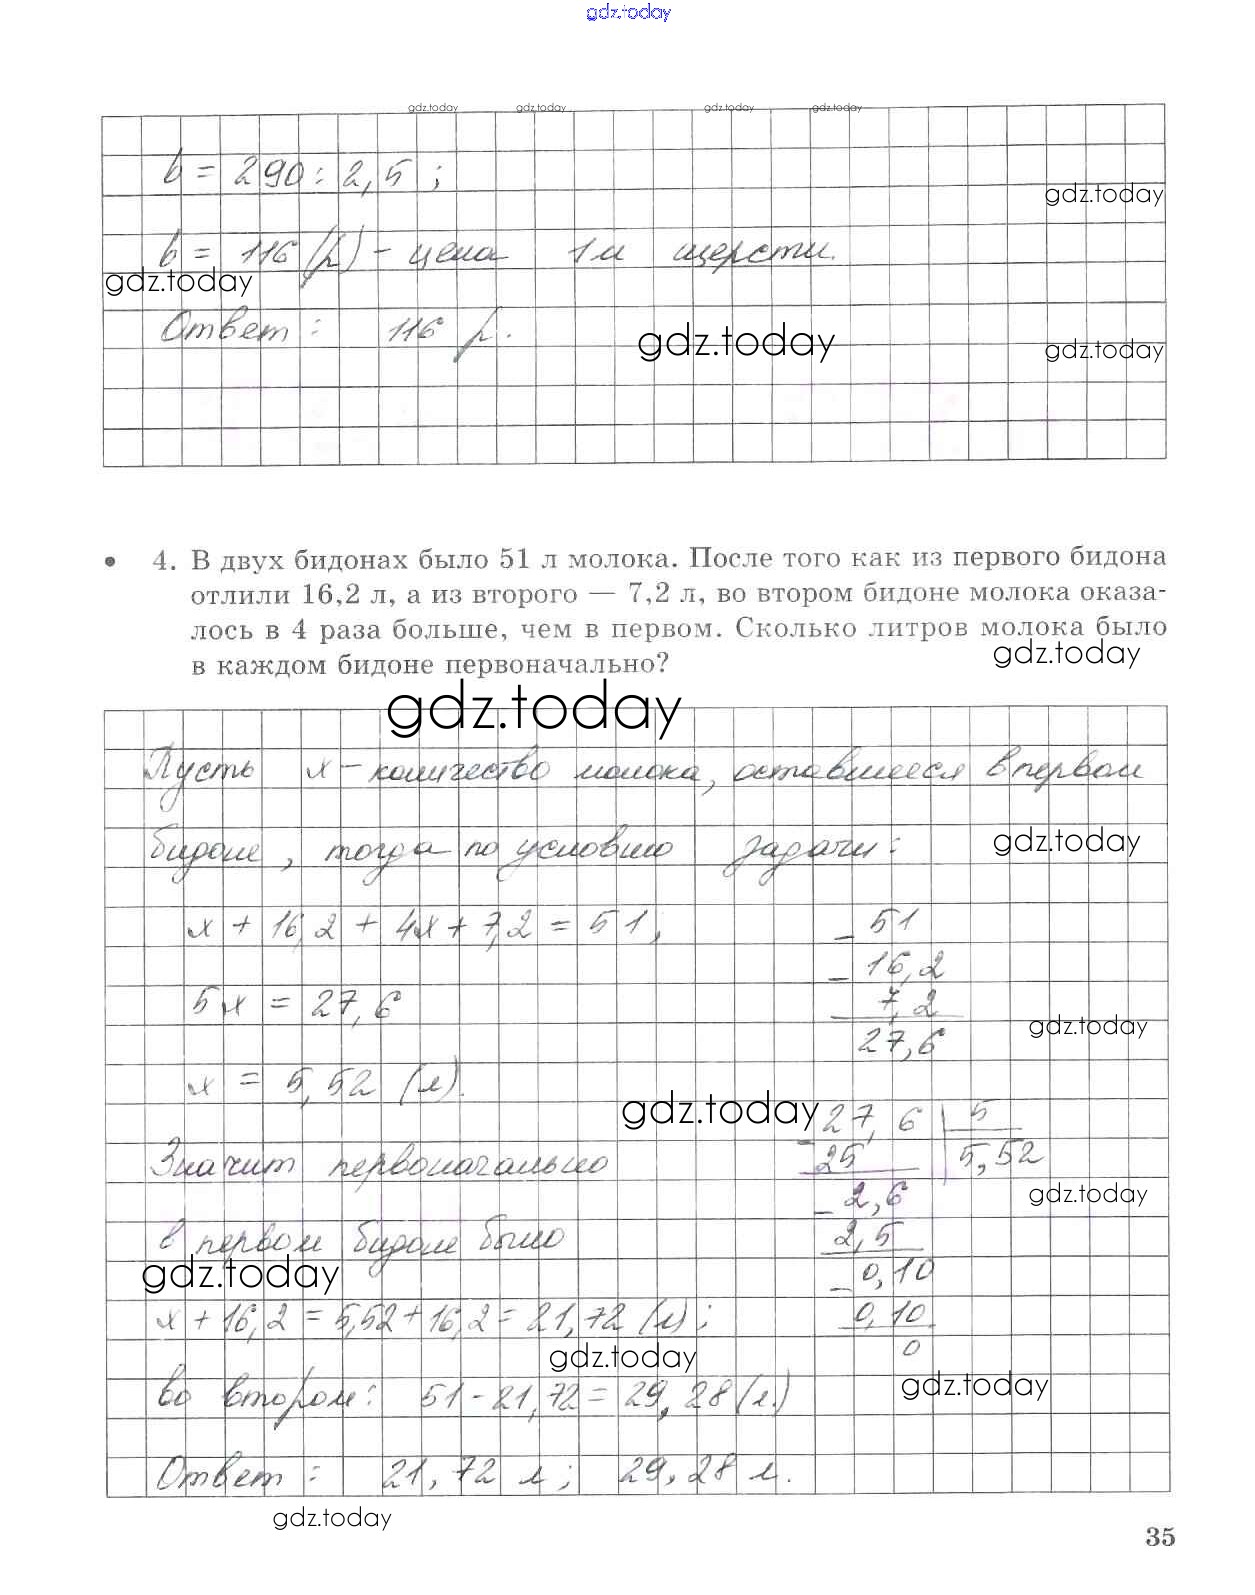 gdz.today
gdz.today gdz.today gdz.today gdz.today
b = 290 : 2,5 ;
gdz.today
b = 116 (р) - цена 1 м шерсти.
gdz.today
Ответ : 116 р.
gdz.today
gdz.today
• 4. В двух бидонах было 51 л молока. После того как из первого бидона
отлили 16,2 л, а из второго — 7,2 л, во втором бидоне молока оказа-
лось в 4 раза больше, чем в первом. Сколько литров молока было
в каждом бидоне первоначально?
gdz.today
gdz.today
Пусть x - количество молока, оставшееся в первом
бидоне, тогда по условию задачи:
gdz.today
x + 16,2 + 4x + 7,2 = 51,
5x = 27,6
x = 5,52 (л).
- 51
- 16,2
7,2
27,6
gdz.today
gdz.today
- 27,6 | 5
25 5,52
- 2,6
2,5
- 0,10
0,10
0
gdz.today
Значит первоначально
в первом бидоне было
gdz.today
x + 16,2 = 5,52 + 16,2 = 21,72 (л) ;
gdz.today
во втором: 51 - 21,72 = 29,28 (л.)
gdz.today
Ответ : 21,72 л ; 29,28 л.
gdz.today
35